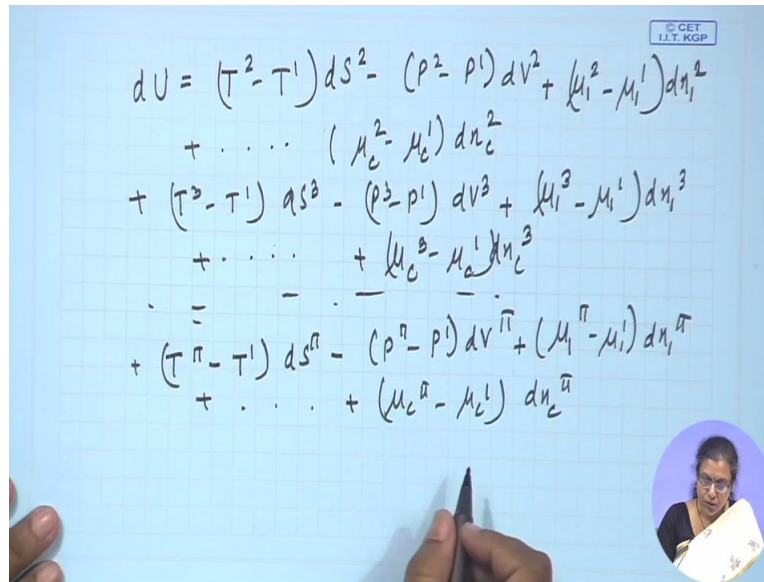 © CET
I.I.T. KGP
dU = (T² - T¹) dS² - (P² - P¹) dV² + (μ₁² - μ₁¹) dn₁²
+ . . . . (μ_c² - μ_c¹) dn_c²
+ (T³ - T¹) dS³ - (P³ - P¹) dV³ + (μ₁³ - μ₁¹) dn₁³
+ . . . . + (μ_c³ - μ_c¹) dn_c³
+ (T^π - T¹) dS^π - (P^π - P¹) dV^π + (μ₁^π - μ₁¹) dn₁^π
+ . . . + (μ_c^π - μ_c¹) dn_c^π